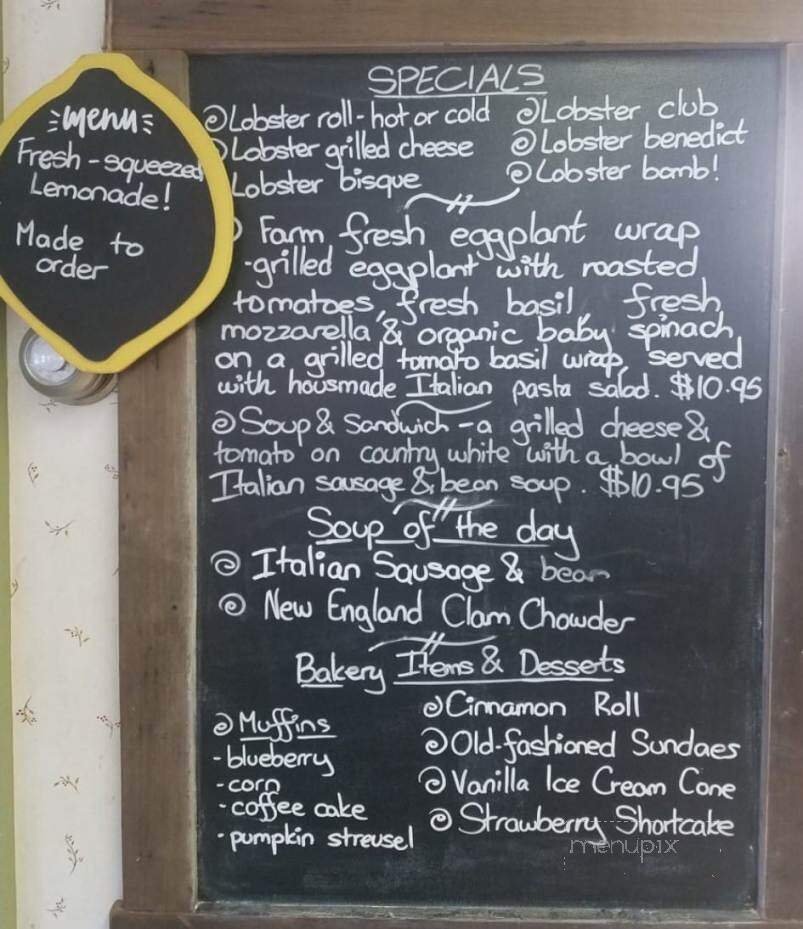 menu
Fresh-squeezed
Lemonade!
Made to
order
SPECIALS
Lobster roll-hot or cold
Lobster grilled cheese
Lobster bisque
Lobster club
Lobster benedict
Lobster bomb!
Farm fresh eggplant wrap
-grilled eggplant with roasted
tomatoes, fresh basil, fresh
mozzarella & organic baby spinach
on a grilled tomato basil wrap, served
with housmade Italian pasta salad. $10.95
Soup & Sandwich - a grilled cheese &
tomato on country white with a bowl of
Italian sausage & bean soup. $10.95
Soup of the day
Italian Sausage & bean
New England Clam Chowder
Bakery Items & Dessets
Muffins
-blueberry
-corn
-coffee cake
-pumpkin streusel
Cinnamon Roll
Old-fashioned Sundaes
Vanilla Ice Cream Cone
Strawberry Shortcake
menupix